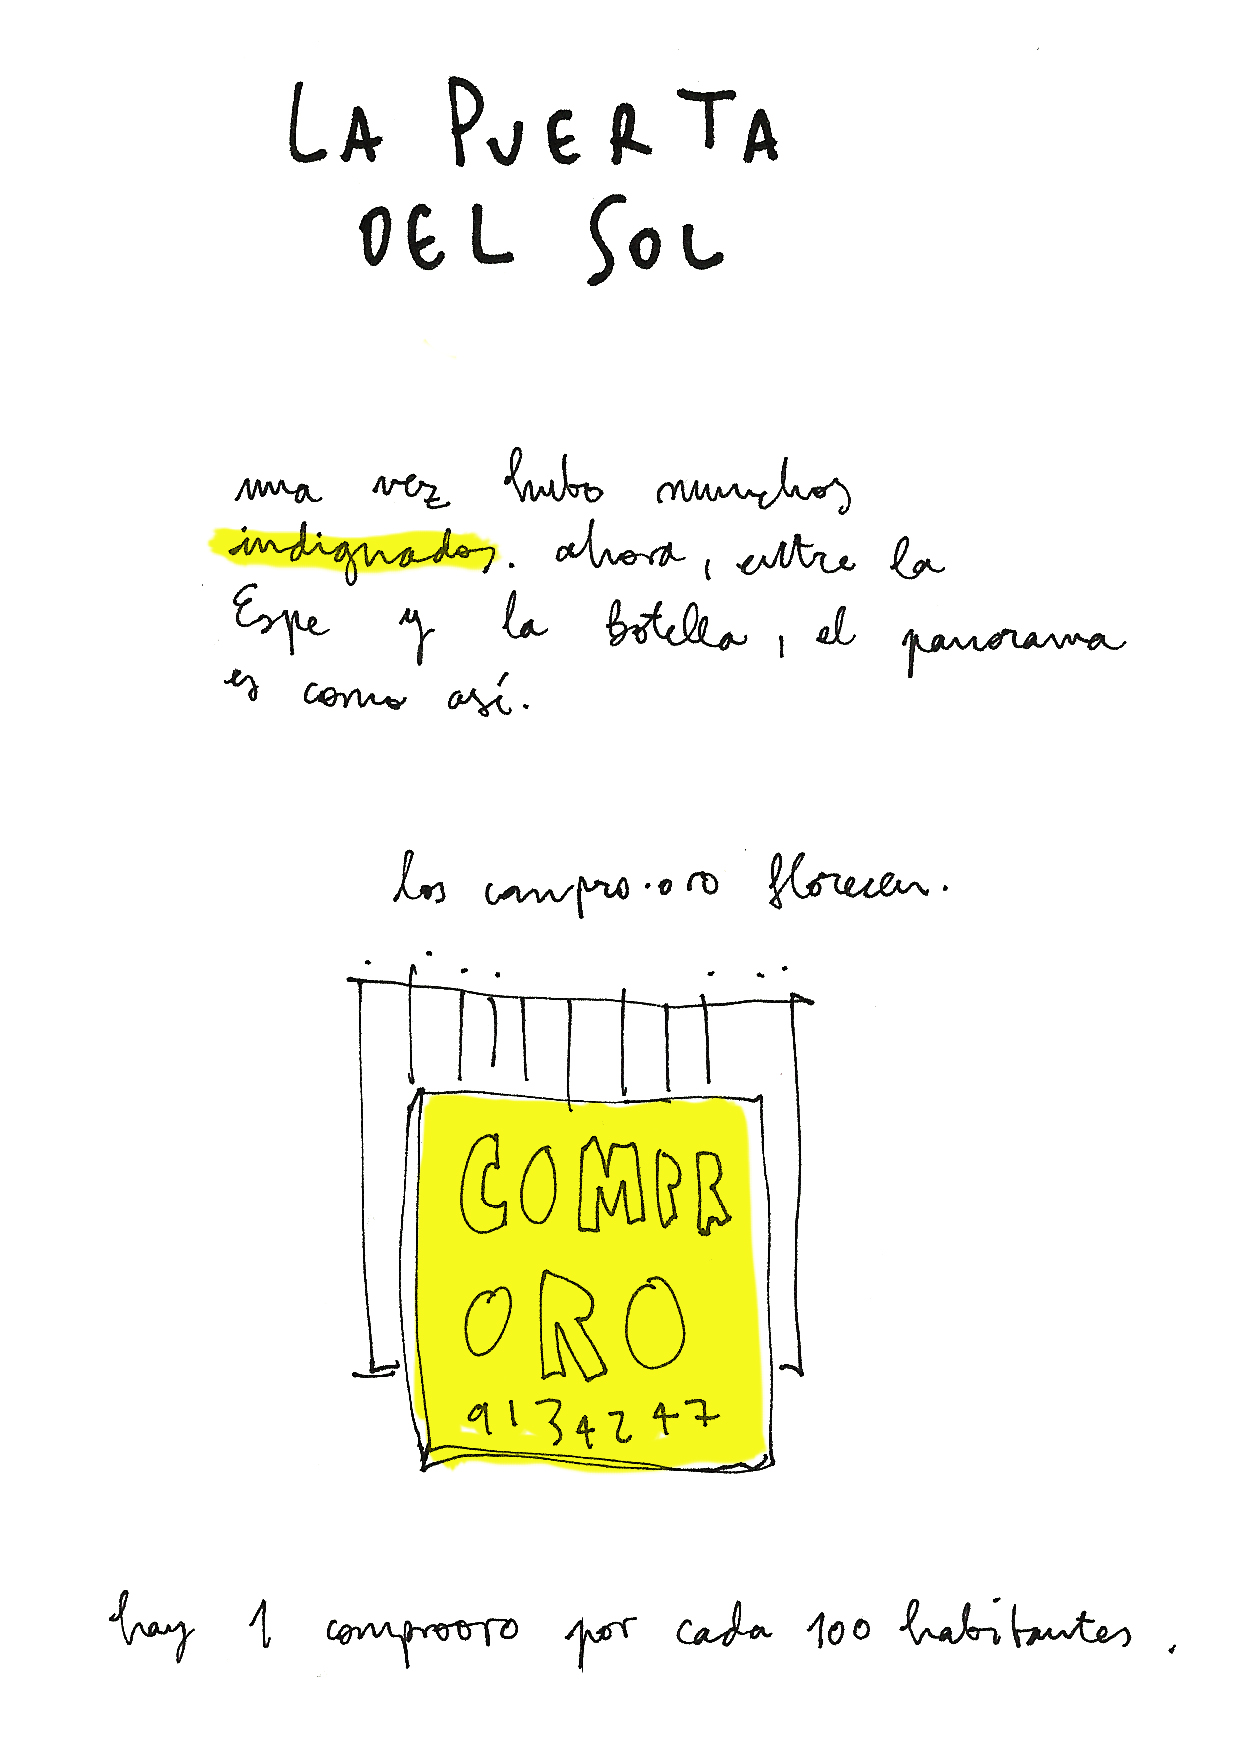 LA PUERTA
DEL SOL
una vez hubo munchos
indignados. ahora, entre la
Espe y la Botella, el panorama
es como así.
los compro.oro florecen.
COMPR
ORO
9134247
hay 1 comprooro por cada 100 habitantes.